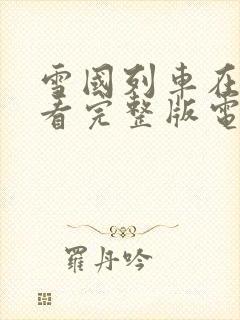 雪國列車在
看完整版電
羅丹吟